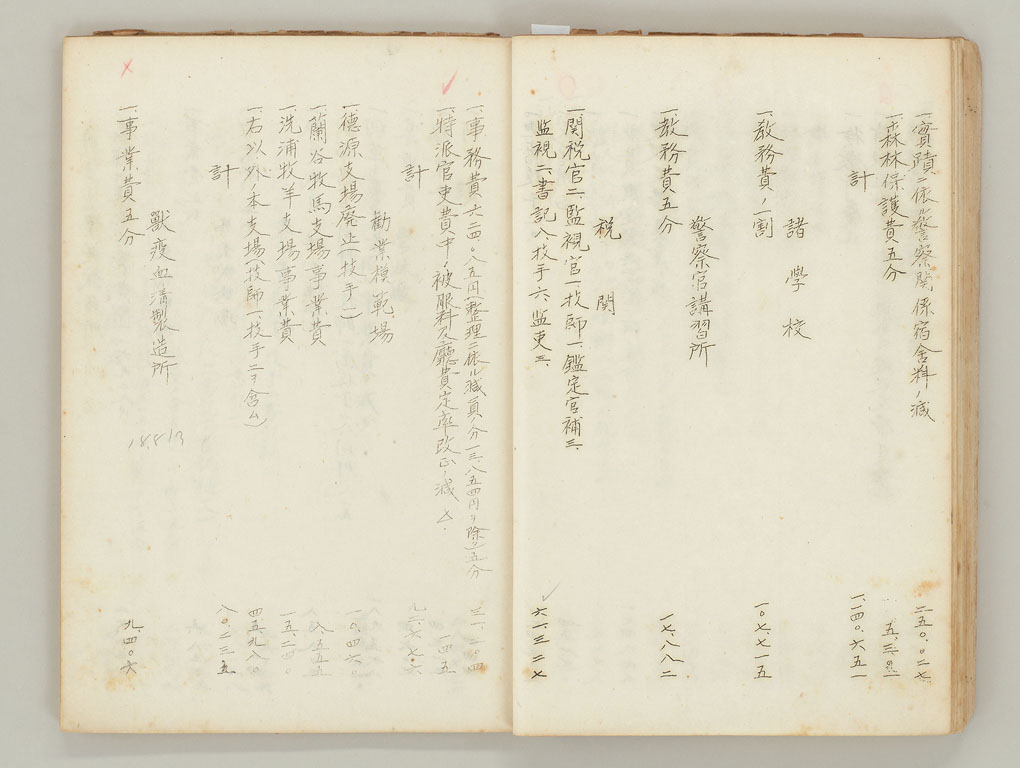 一、實蹟ニ依ル警察関係宿舎料ノ減 二五〇、〇二七
一、森林保護費五分 五、三〇一
計 一、一四〇、六五一
諸學校
一、教務費ノ一割 一〇七、七一五
警察官講習所
一、教務費五分 一七、八八二
税関
一、関税官二、監視官一、技師一、鑑定官補三、
監視二、書記八、技手六、監吏三、 六一、三二七
一、事務費六二四、〇八五円(整理ニ依ル減員ノ分一三、八五四円ヲ除ク)五分
一、特派官吏費中ノ被服料及廳費定率改正ノ減 一四五
計
勧業模範場
一、徳源支場廃止(技手一) 一〇、四六〇
一、蘭谷牧馬支場事業費 八、五五五
一、洗浦牧羊支場事業費 一五、二四〇
一、右以外ノ本支場(技師一、技手二ヲ含ム) 四五、九八〇
計 八〇、二三五
獸疫血清製造所
18813
一、事業費五分 九、四〇六